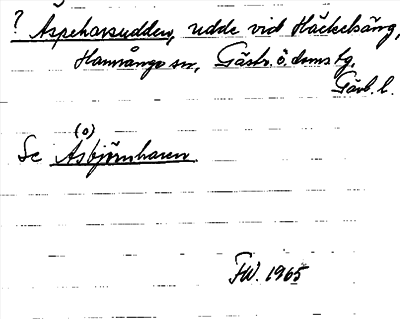 ? Aspeharsudden, udde vid Häckelsäng,
Hamrånge sn, Gästr. ö. doms tg,
Gävl. l.
(o)
Se Asbjörnharen
FW. 1965